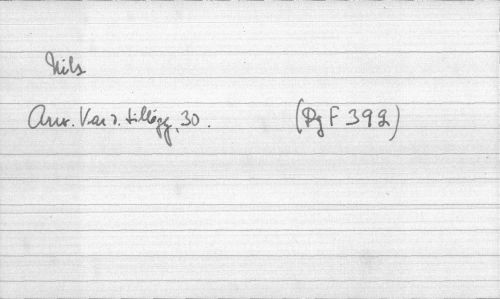 Nils
Anv. Var d. tillägg, 30. (Rg F 392)